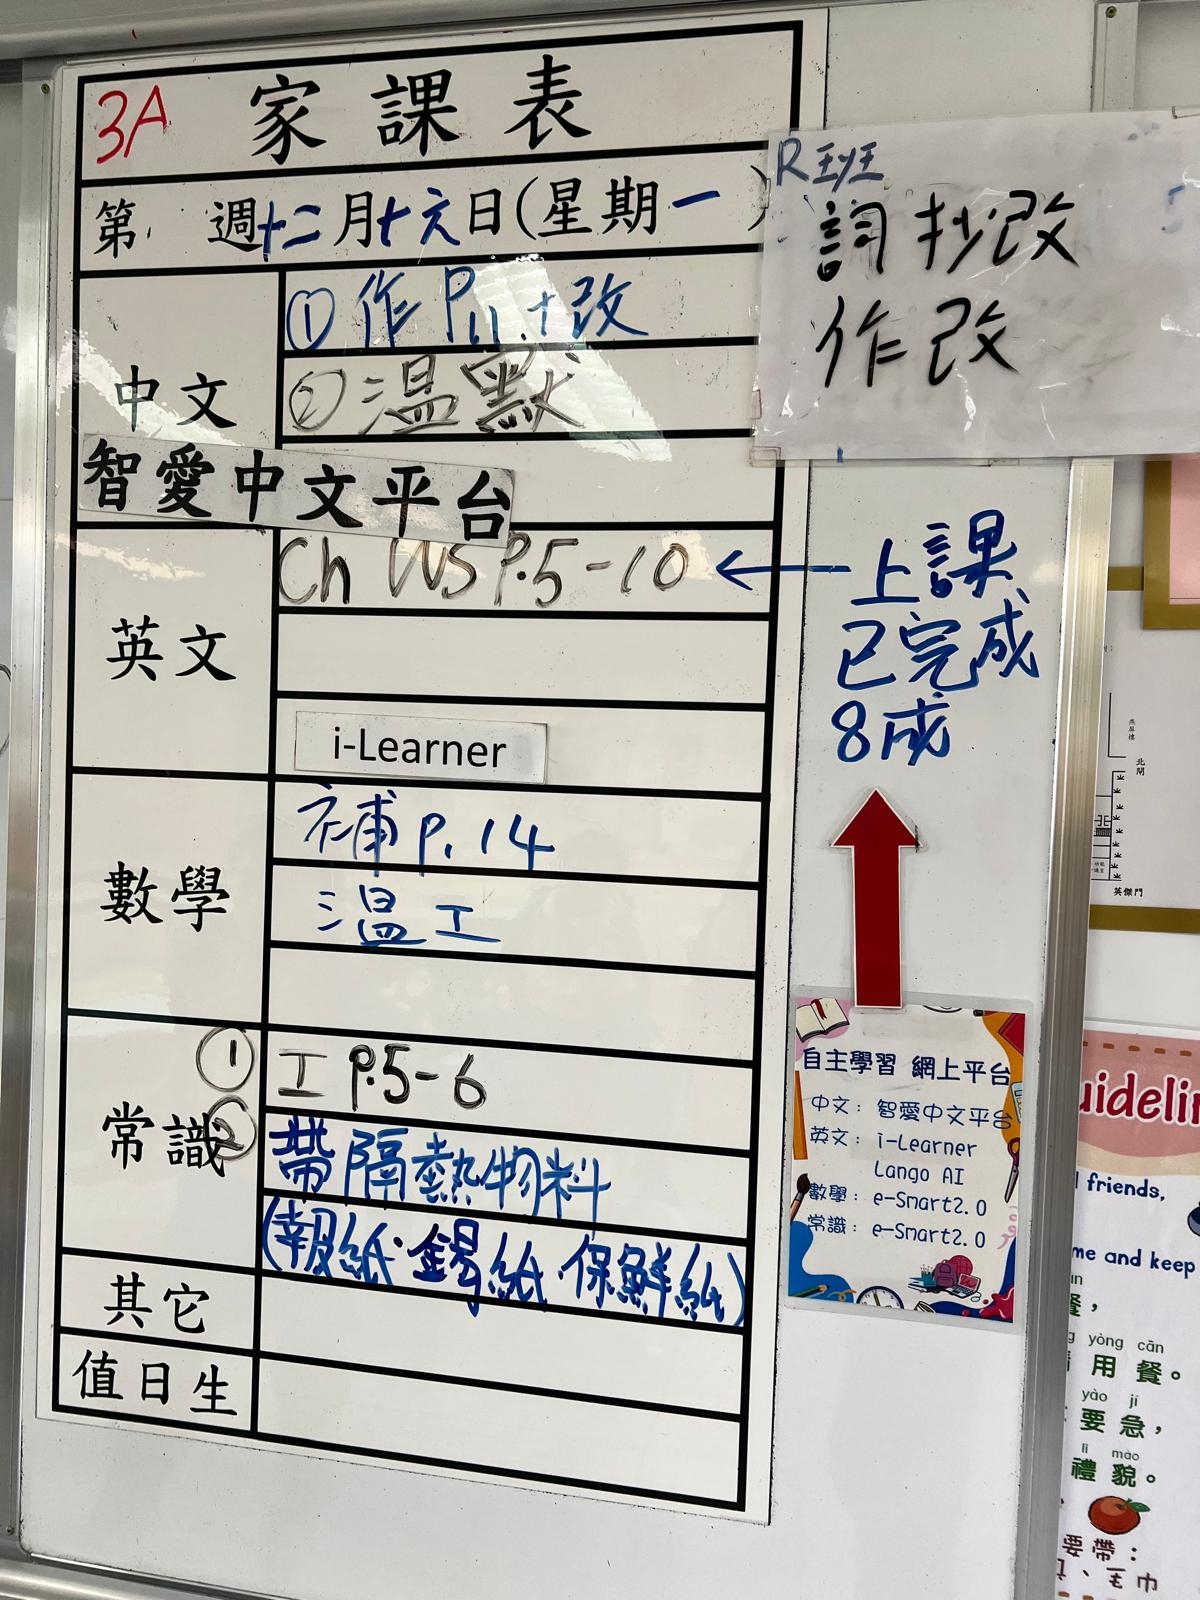 3A 家課表
第 週十二月十六日(星期一)
中文
①作P.11.+改
②温默
智愛中文平台
英文
Ch WS P.5-10 ← 上課已完成8成
i-Learner
數學
補 P.14
温工
常識
① 工 P.5-6
② 帶隔熱物料
(報紙·錫紙·保鮮紙)
其它
值日生
R班
詞抄改
作改
自主學習 網上平台
中文：智愛中文平台
英文：i-Learner
Lango AI
數學：e-Smart2.0
常識：e-Smart2.0
北閘
英傑門
uidelin
friends,
me and keep
餐，
yòng cān
用餐。
yào jí
要急，
lǐ mào
禮貌。
要帶：
、毛巾